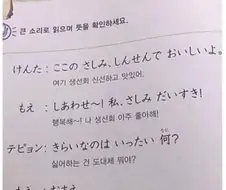 큰 소리로 읽으며 뜻을 확인하세요.
けんた : ここの さしみ、しんせんで おいしいよ。
여기 생선회 신선하고 맛있어.
もえ : しあわせ〜! 私、さしみ だいすき!
행복해~! 나 생선회 아주 좋아해!
テピョン : きらいなのは いったい 何?
싫어하는 건 도대체 뭐야?